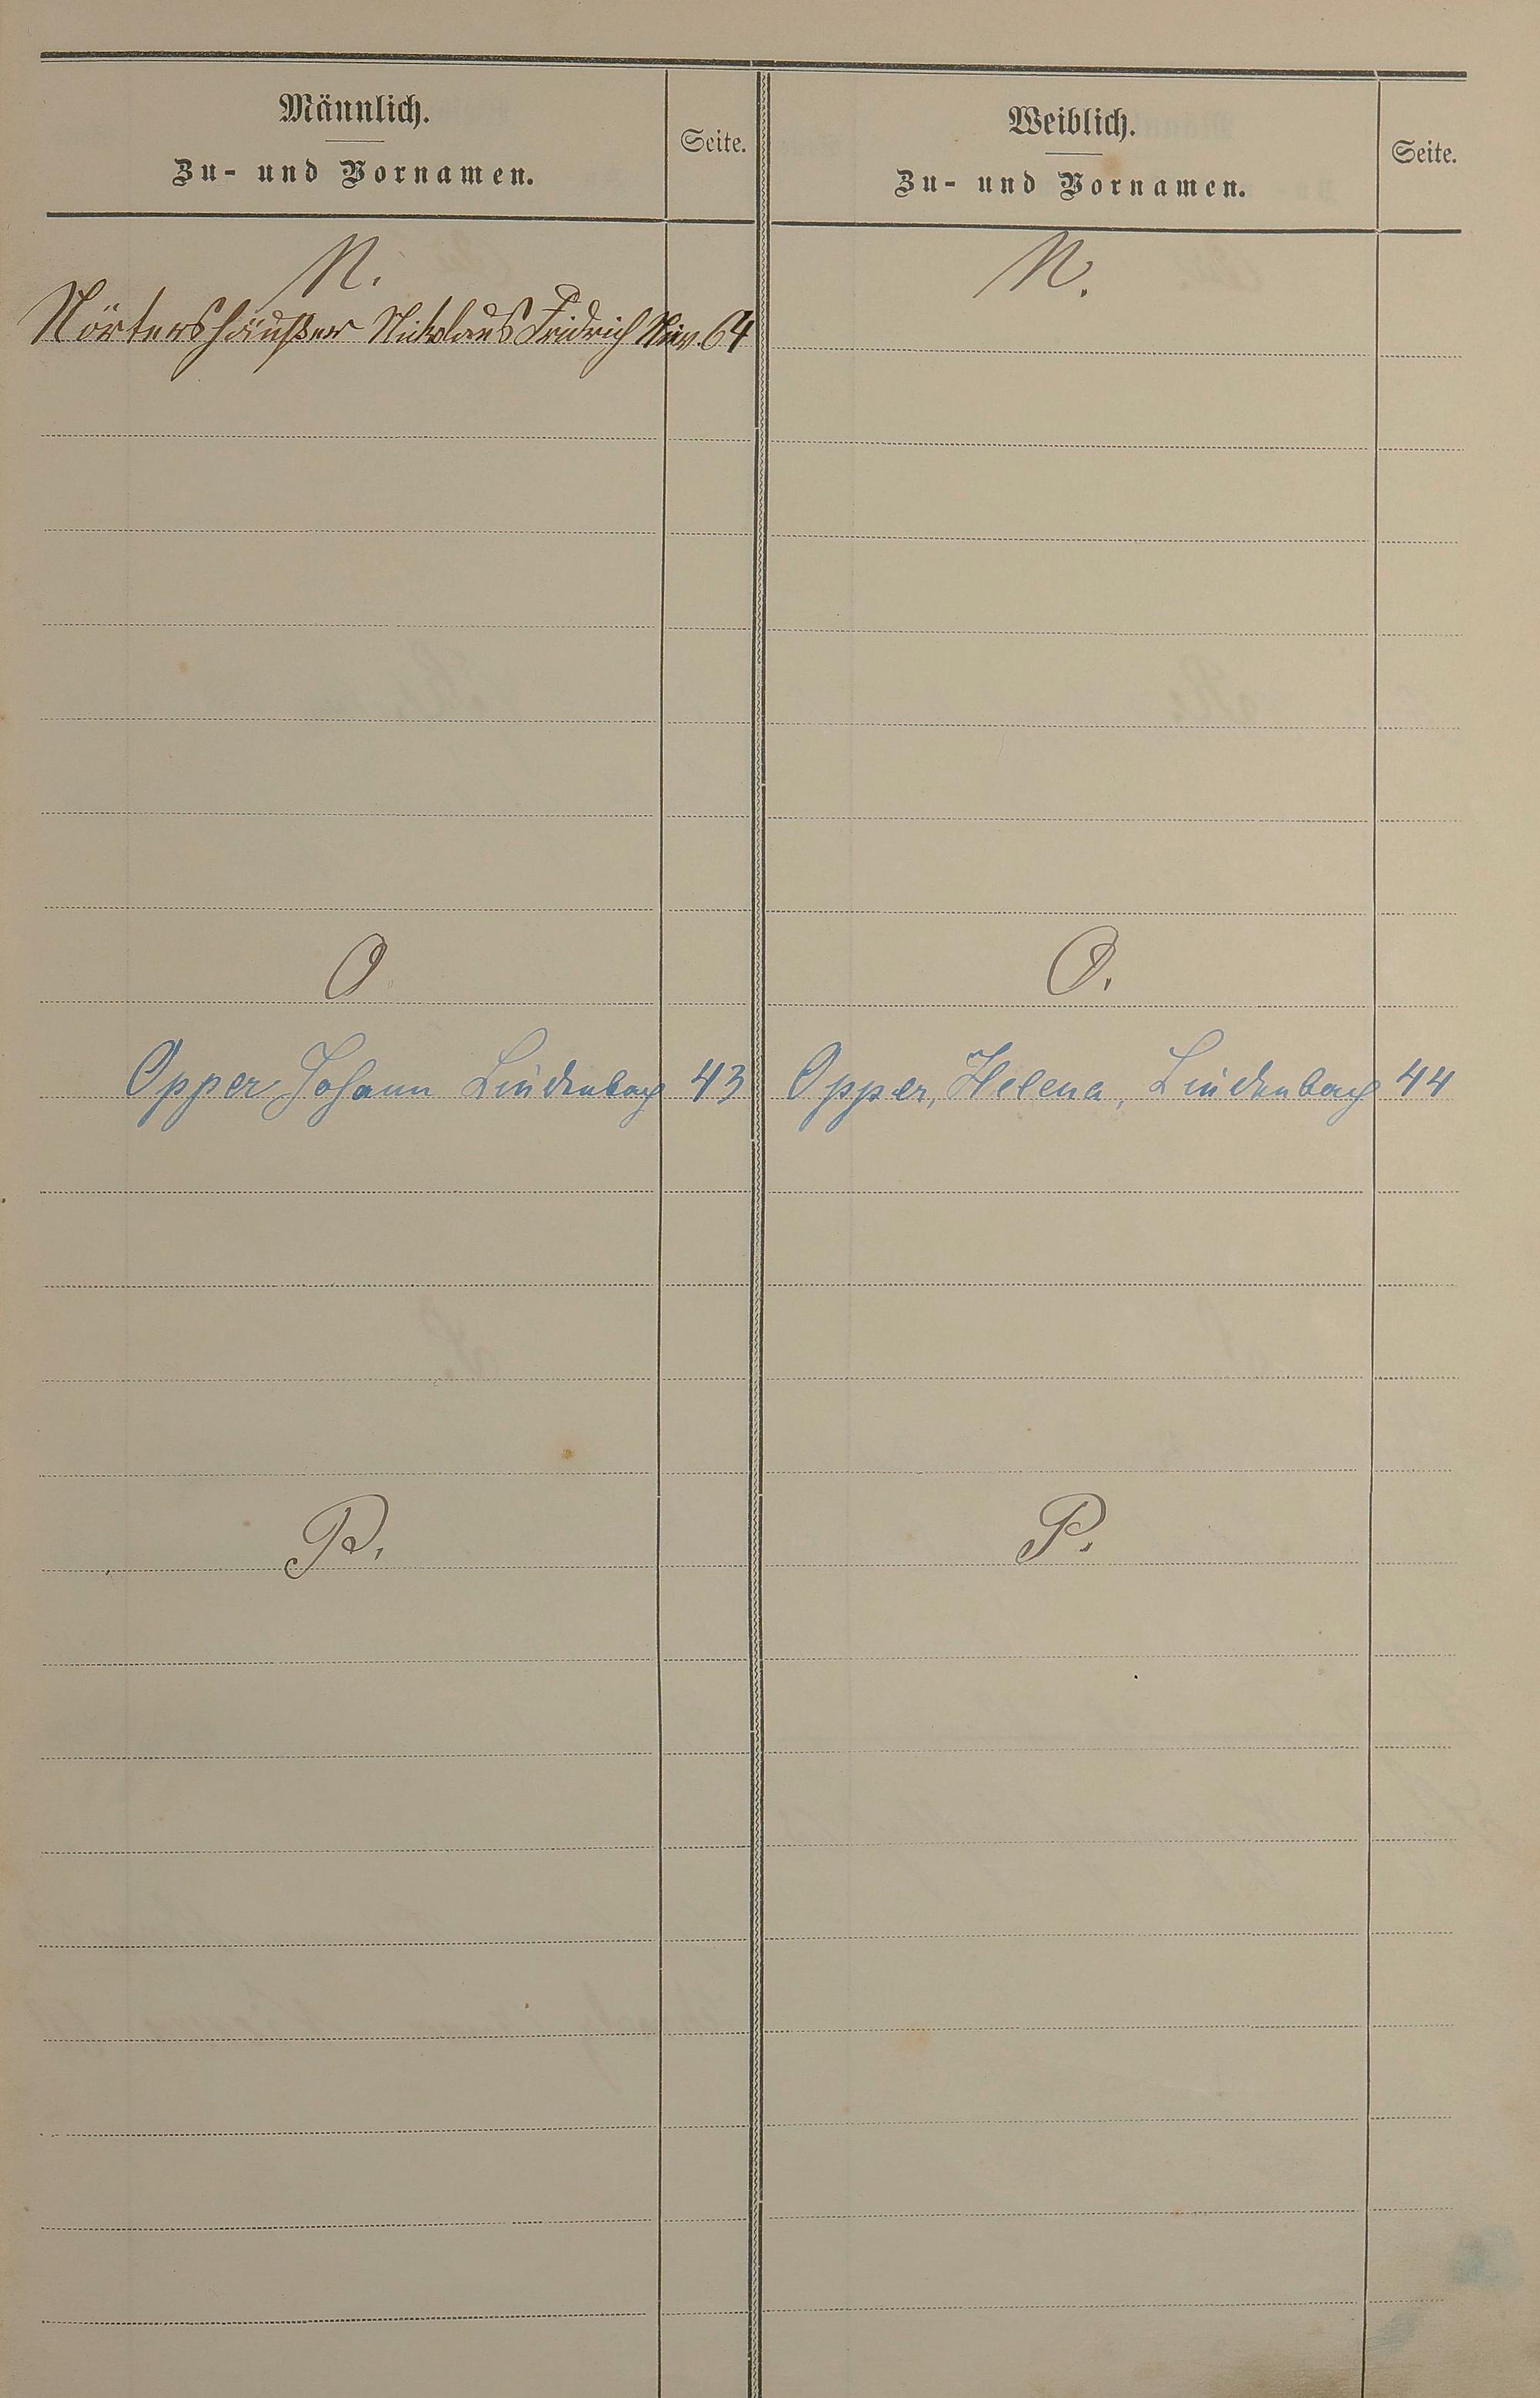 Männlich.
Zu- und Vornamen.
Seite.
Weiblich.
Zu- und Vornamen.
Seite.
N.
Nörtershäußer Nikolaus Fridrich 64
N.
O.
O.
Opper Johann Lindenbach 43
Opper, Helena, Lindenbach 44
P.
P.